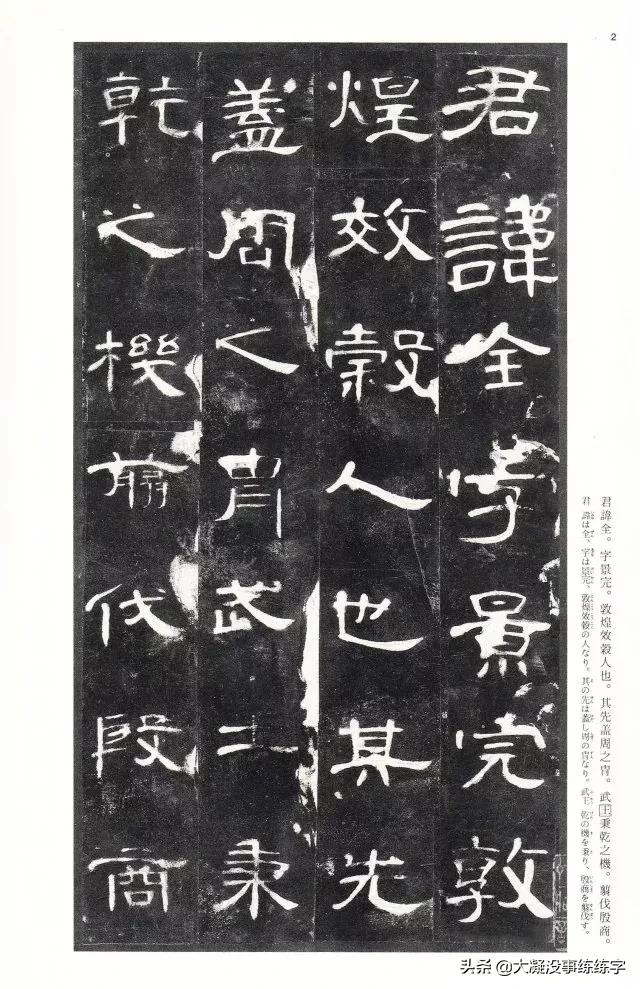 2
君諱全字景完敦
煌效穀人也其先
蓋周之胄武王秉
乾之機翦伐殷商
君諱全。字景完。敦煌效穀人也。其先蓋周之冑。武王秉乾之機。翦伐殷商。
君諱は全、字は景完、敦煌效穀の人なり。其の先は蓋し周の冑なり。武王、乾の機を秉り、殷商を翦伐す。
头条 @大凝没事练练字